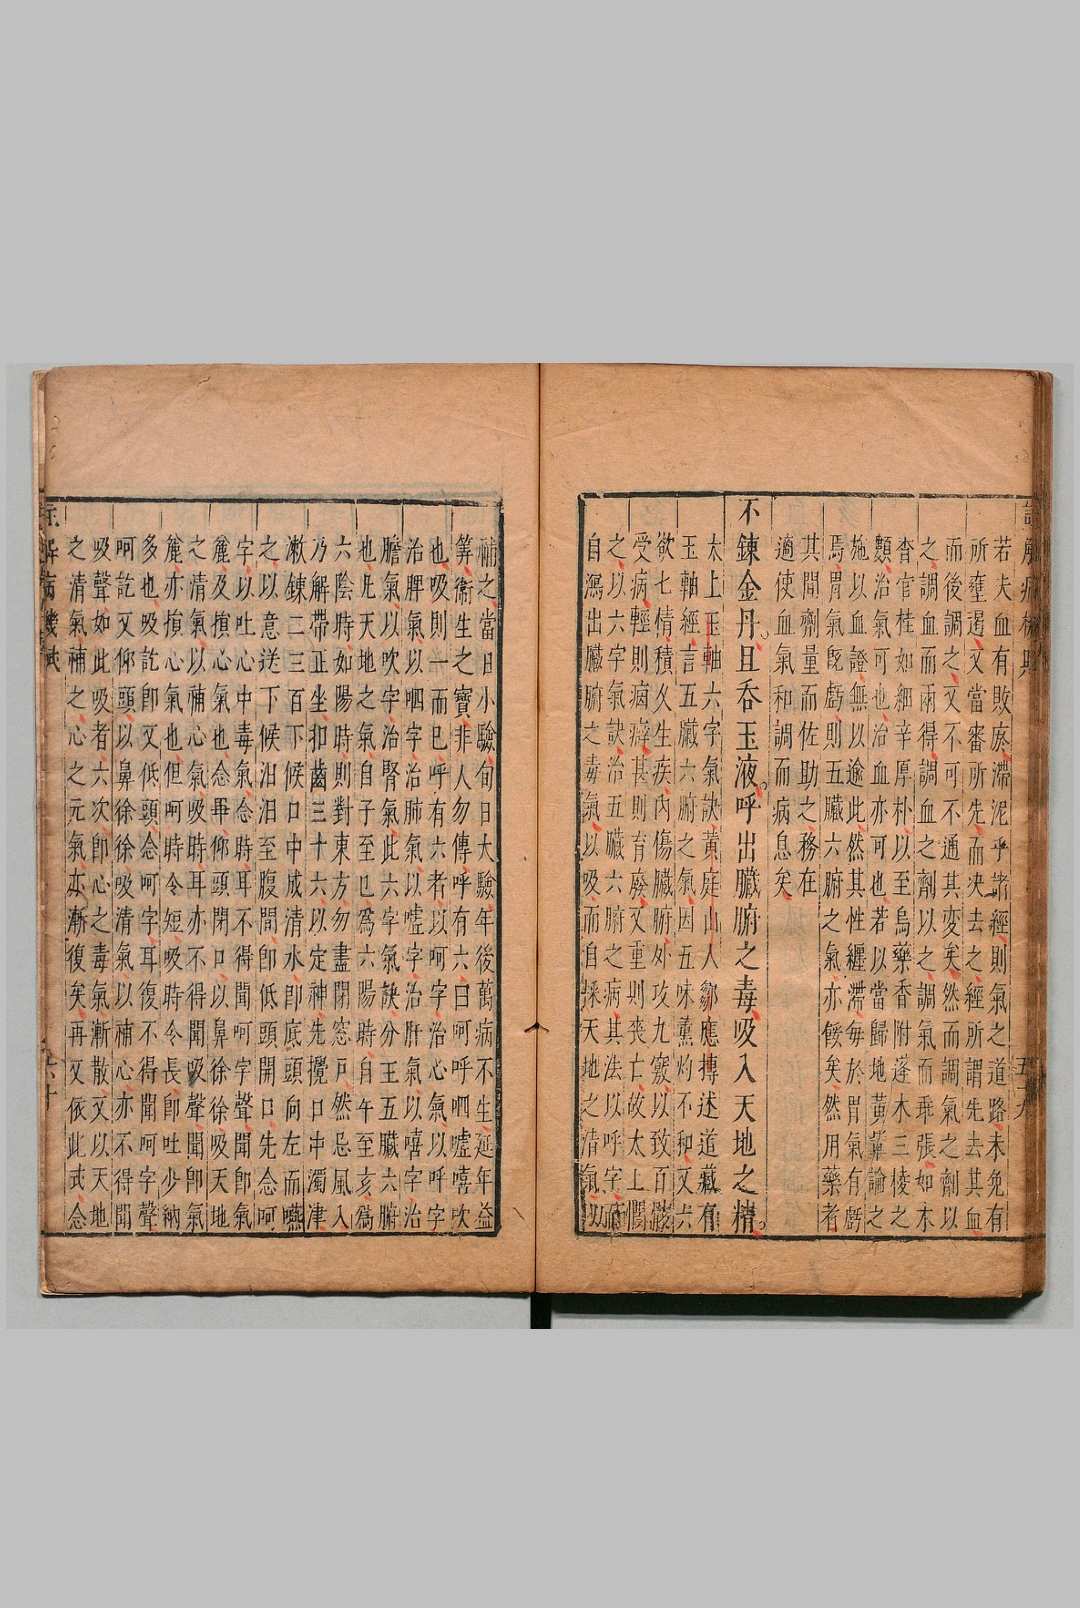 若夫血有敗瘀滯泥乎諸經則氣之道路未免有
所壅遏又當審所先而決去之經所謂先去其血
而後調之又不可不通其變矣然而調氣之劑以
之調血而兩得調血之劑以之調氣而乖張如木
香官桂如細辛厚朴以至烏藥香附蓬朮三稜之
類治氣可也治血亦可也若以當歸地黃輩論之
施以血證無以逾此然其性纏滯每於胃氣有虧
焉胃氣旣虧則五臟六腑之氣亦餒矣然用藥者
其間劑量而佐助之務在
適使血氣和調而病息矣
不鍊金丹且吞玉液呼出臟腑之毒吸入天地之精
太上玉軸六字氣訣黃庭山人鄒應摶述道藏有
玉軸經言五臟六腑之氣因五味薰灼不和又六
欲七情積久生疾內傷臟腑外攻九竅以致百骸
受病輕則痼癖甚則盲廢又重則喪亡故太上憫
之以六字氣訣治五臟六腑之病其法以呼字而
自瀉出臟腑之毒氣以吸而自採天地之清氣以
補之當日小驗旬日大驗年後萬病不生延年益
筭衛生之寶非人勿傳呼有六曰呵呼呬噓嘻吹
也吸則一而已呼有六者以呵字治心氣以呼字
治脾氣以呬字治肺氣以噓字治肝氣以嘻字治
膽氣以吹字治腎氣此六字氣訣分主五臟六腑
也凡天地之氣自子至巳爲六陽時自午至亥爲
六陰時如陽時則對東方勿盡閉窓戶然忌風入
乃解帶正坐扣齒三十六以定神先攪口中濁津
漱鍊二三百下候口中成清水即底頭向左而嚥
之以意送下候汩汩至腹間即低頭開口先念呵
字以吐心中毒氣念時耳不得聞呵字聲聞即氣
麄及損心氣也念畢仰頭閉口以鼻徐徐吸天地
之清氣以補心氣吸時耳亦不得聞吸聲聞即氣
麄亦損心氣也但呵時令短吸時令長即吐少納
多也吸訖即又低頭念呵字耳復不得聞呵字聲
呵訖又仰頭以鼻徐徐吸清氣以補心亦不得聞
吸聲如此吸者六次即心之毒氣漸散又以天地
之清氣補之心之元氣亦漸復矣再又依此式念